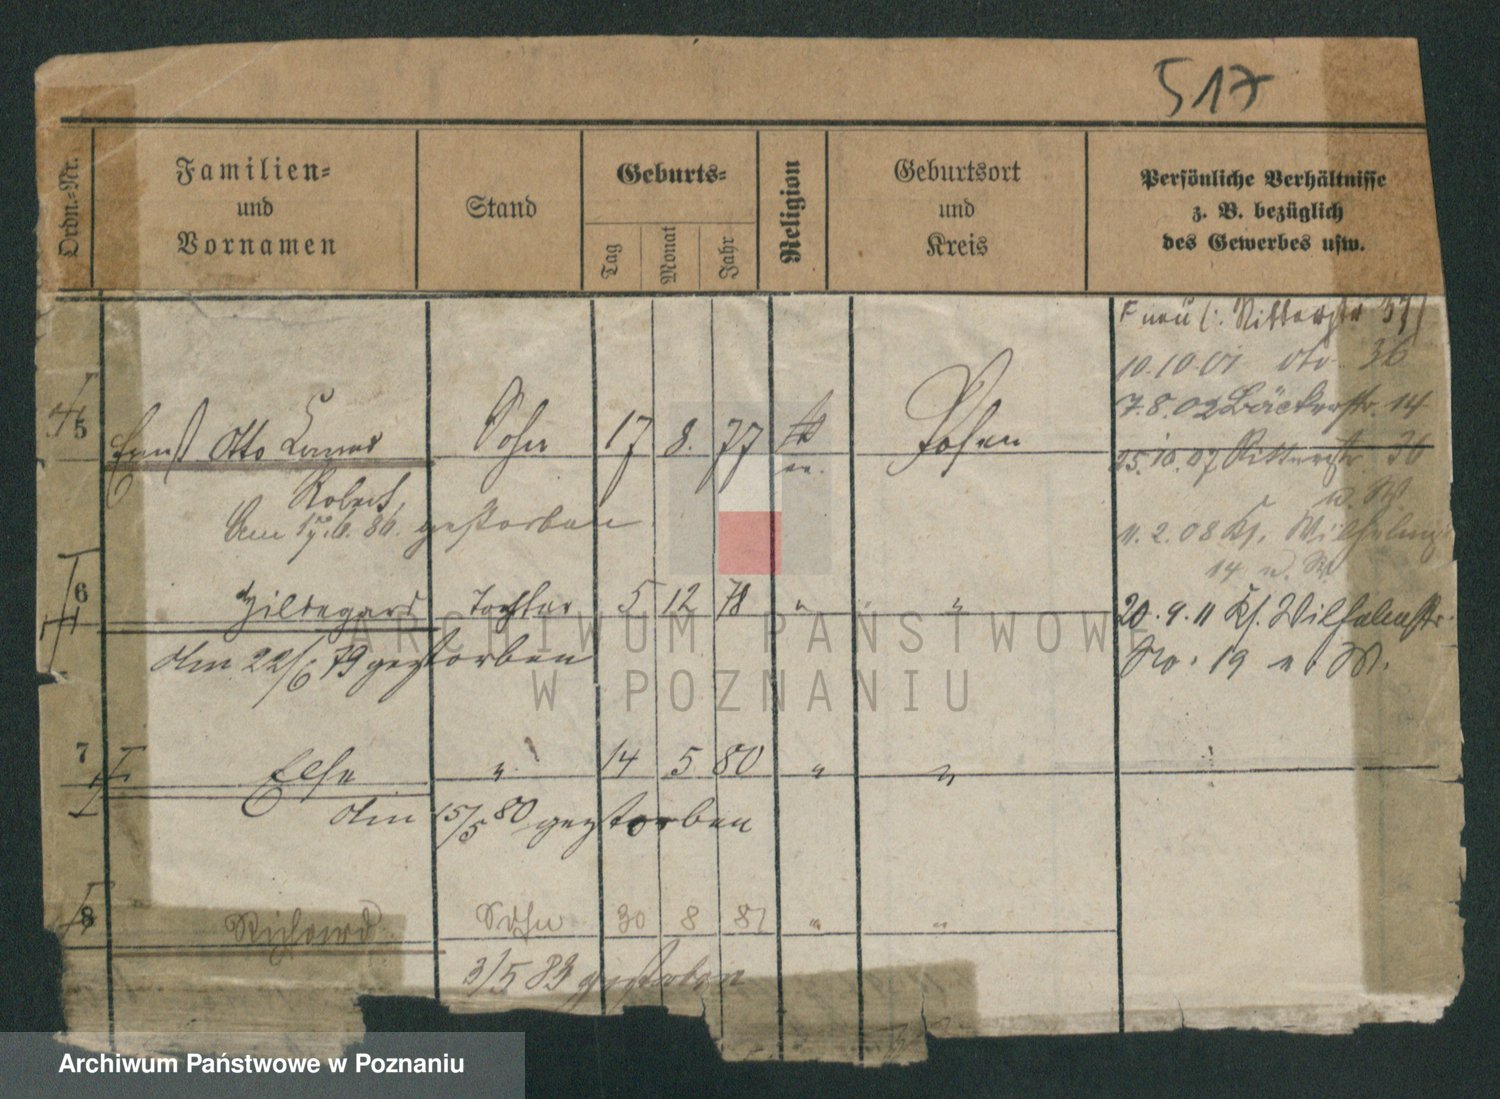 517
Ordn.-Nr.
Familien-
und
Vornamen
Stand
Geburts-
Tag
Monat
Jahr
Religion
Geburtsort
und
Kreis
Persönliche Verhältnisse
z. B. bezüglich
des Gewerbes usw.
Ritterstr 37
10.10.01 dto. 36
7.8.02 Bäckerstr. 14
5 Ernst Otto Sohn 17 8. 77 ev. Posen
25.10.07 Ritterstr. 36
Robert
Am 6. 86. gestorben
11.2.08 Kl. Wilhelmstr
14
6 Hildegard Tochter 5 12 78 " "
20.9.11 Kl. Wilhelmstr.
Am 22/6 79 gestorben
No. 19
7 Else " 14 5 80 " "
Am 15/5 80 gestorben
8 Richard Sohn 30 8 81 " "
3/5 83 gestorben
ARCHIWUM PAŃSTWOWE
W POZNANIU
Archiwum Państwowe w Poznaniu